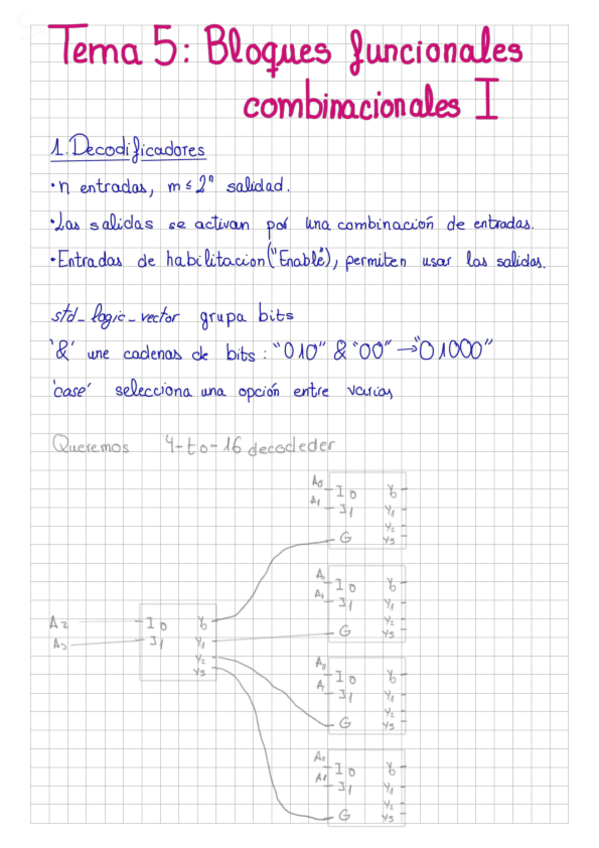 Tema 5: Bloques funcionales
combinacionales I
1. Decodificadores
· n entradas, m ≤ 2ⁿ salidad.
· Las salidas se activan por una combinación de entradas.
· Entradas de habilitacion ("Enable"), permiten usar las salidas.
std_logic_vector grupa bits
'&' une cadenas de bits: "010" & "00" → "01000"
'case' selecciona una opción entre varias
Queremos 4-to-16 decodeder
A0 I0 Y0
A1 I1 Y1
Y2
G Y3
A0 I0 Y0
A1 I1 Y1
Y2
G Y3
A2 I0 Y0
A3 I1 Y1
Y2
Y3
A0 I0 Y0
A1 I1 Y1
Y2
G Y3
A0 I0 Y0
A1 I1 Y1
Y2
G Y3